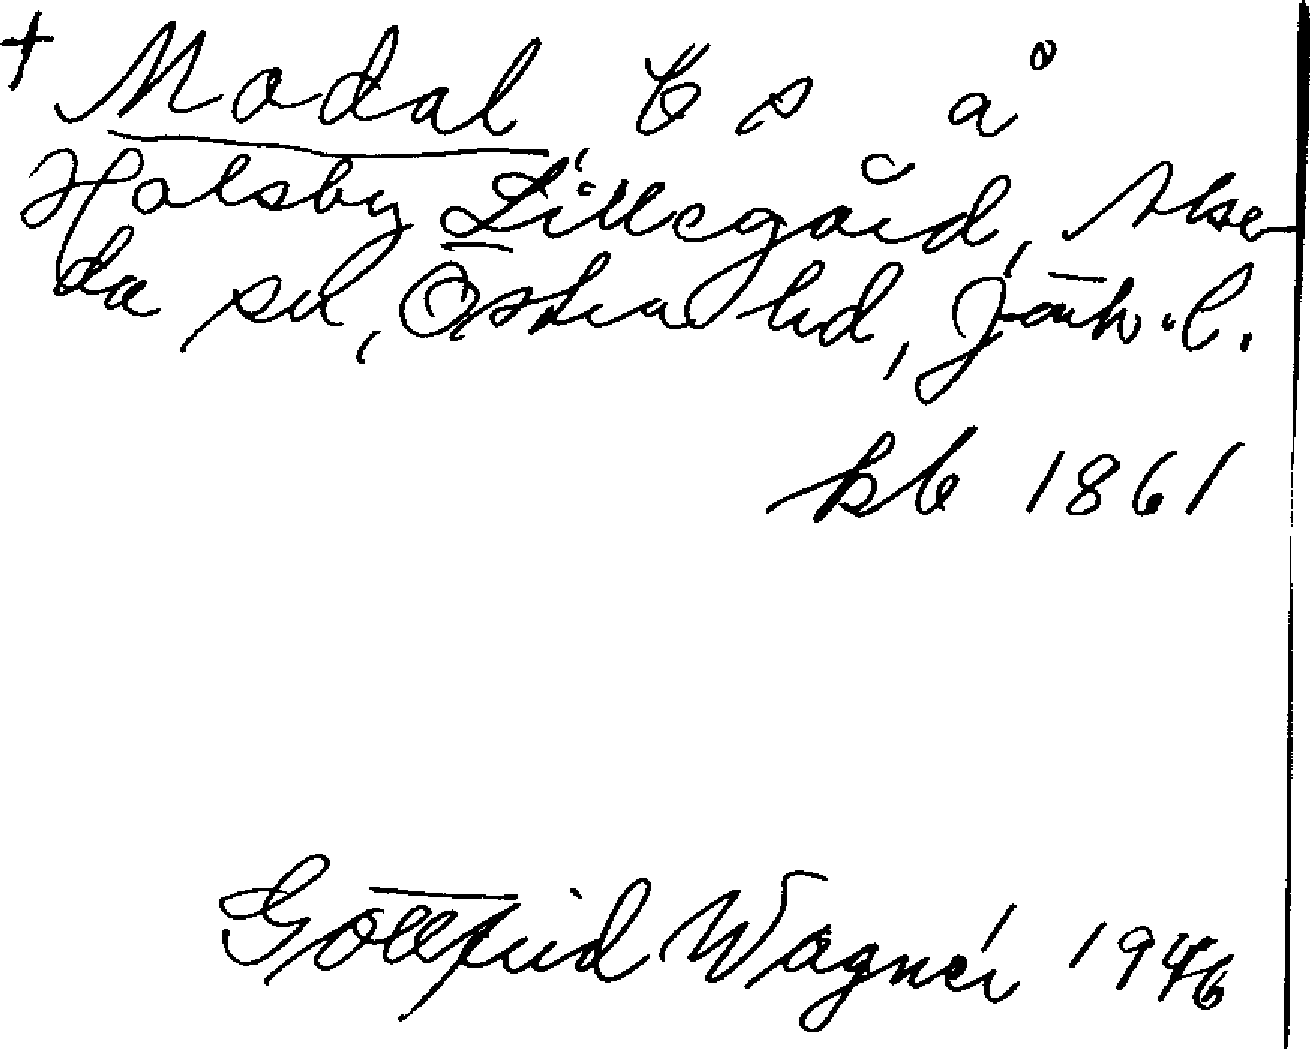 + Modal, bs å
Holsby Lillegård, Alse-
da sn, Östra hd, Jönk. l.
kb 1861
Gottfrid Wagnér 1946